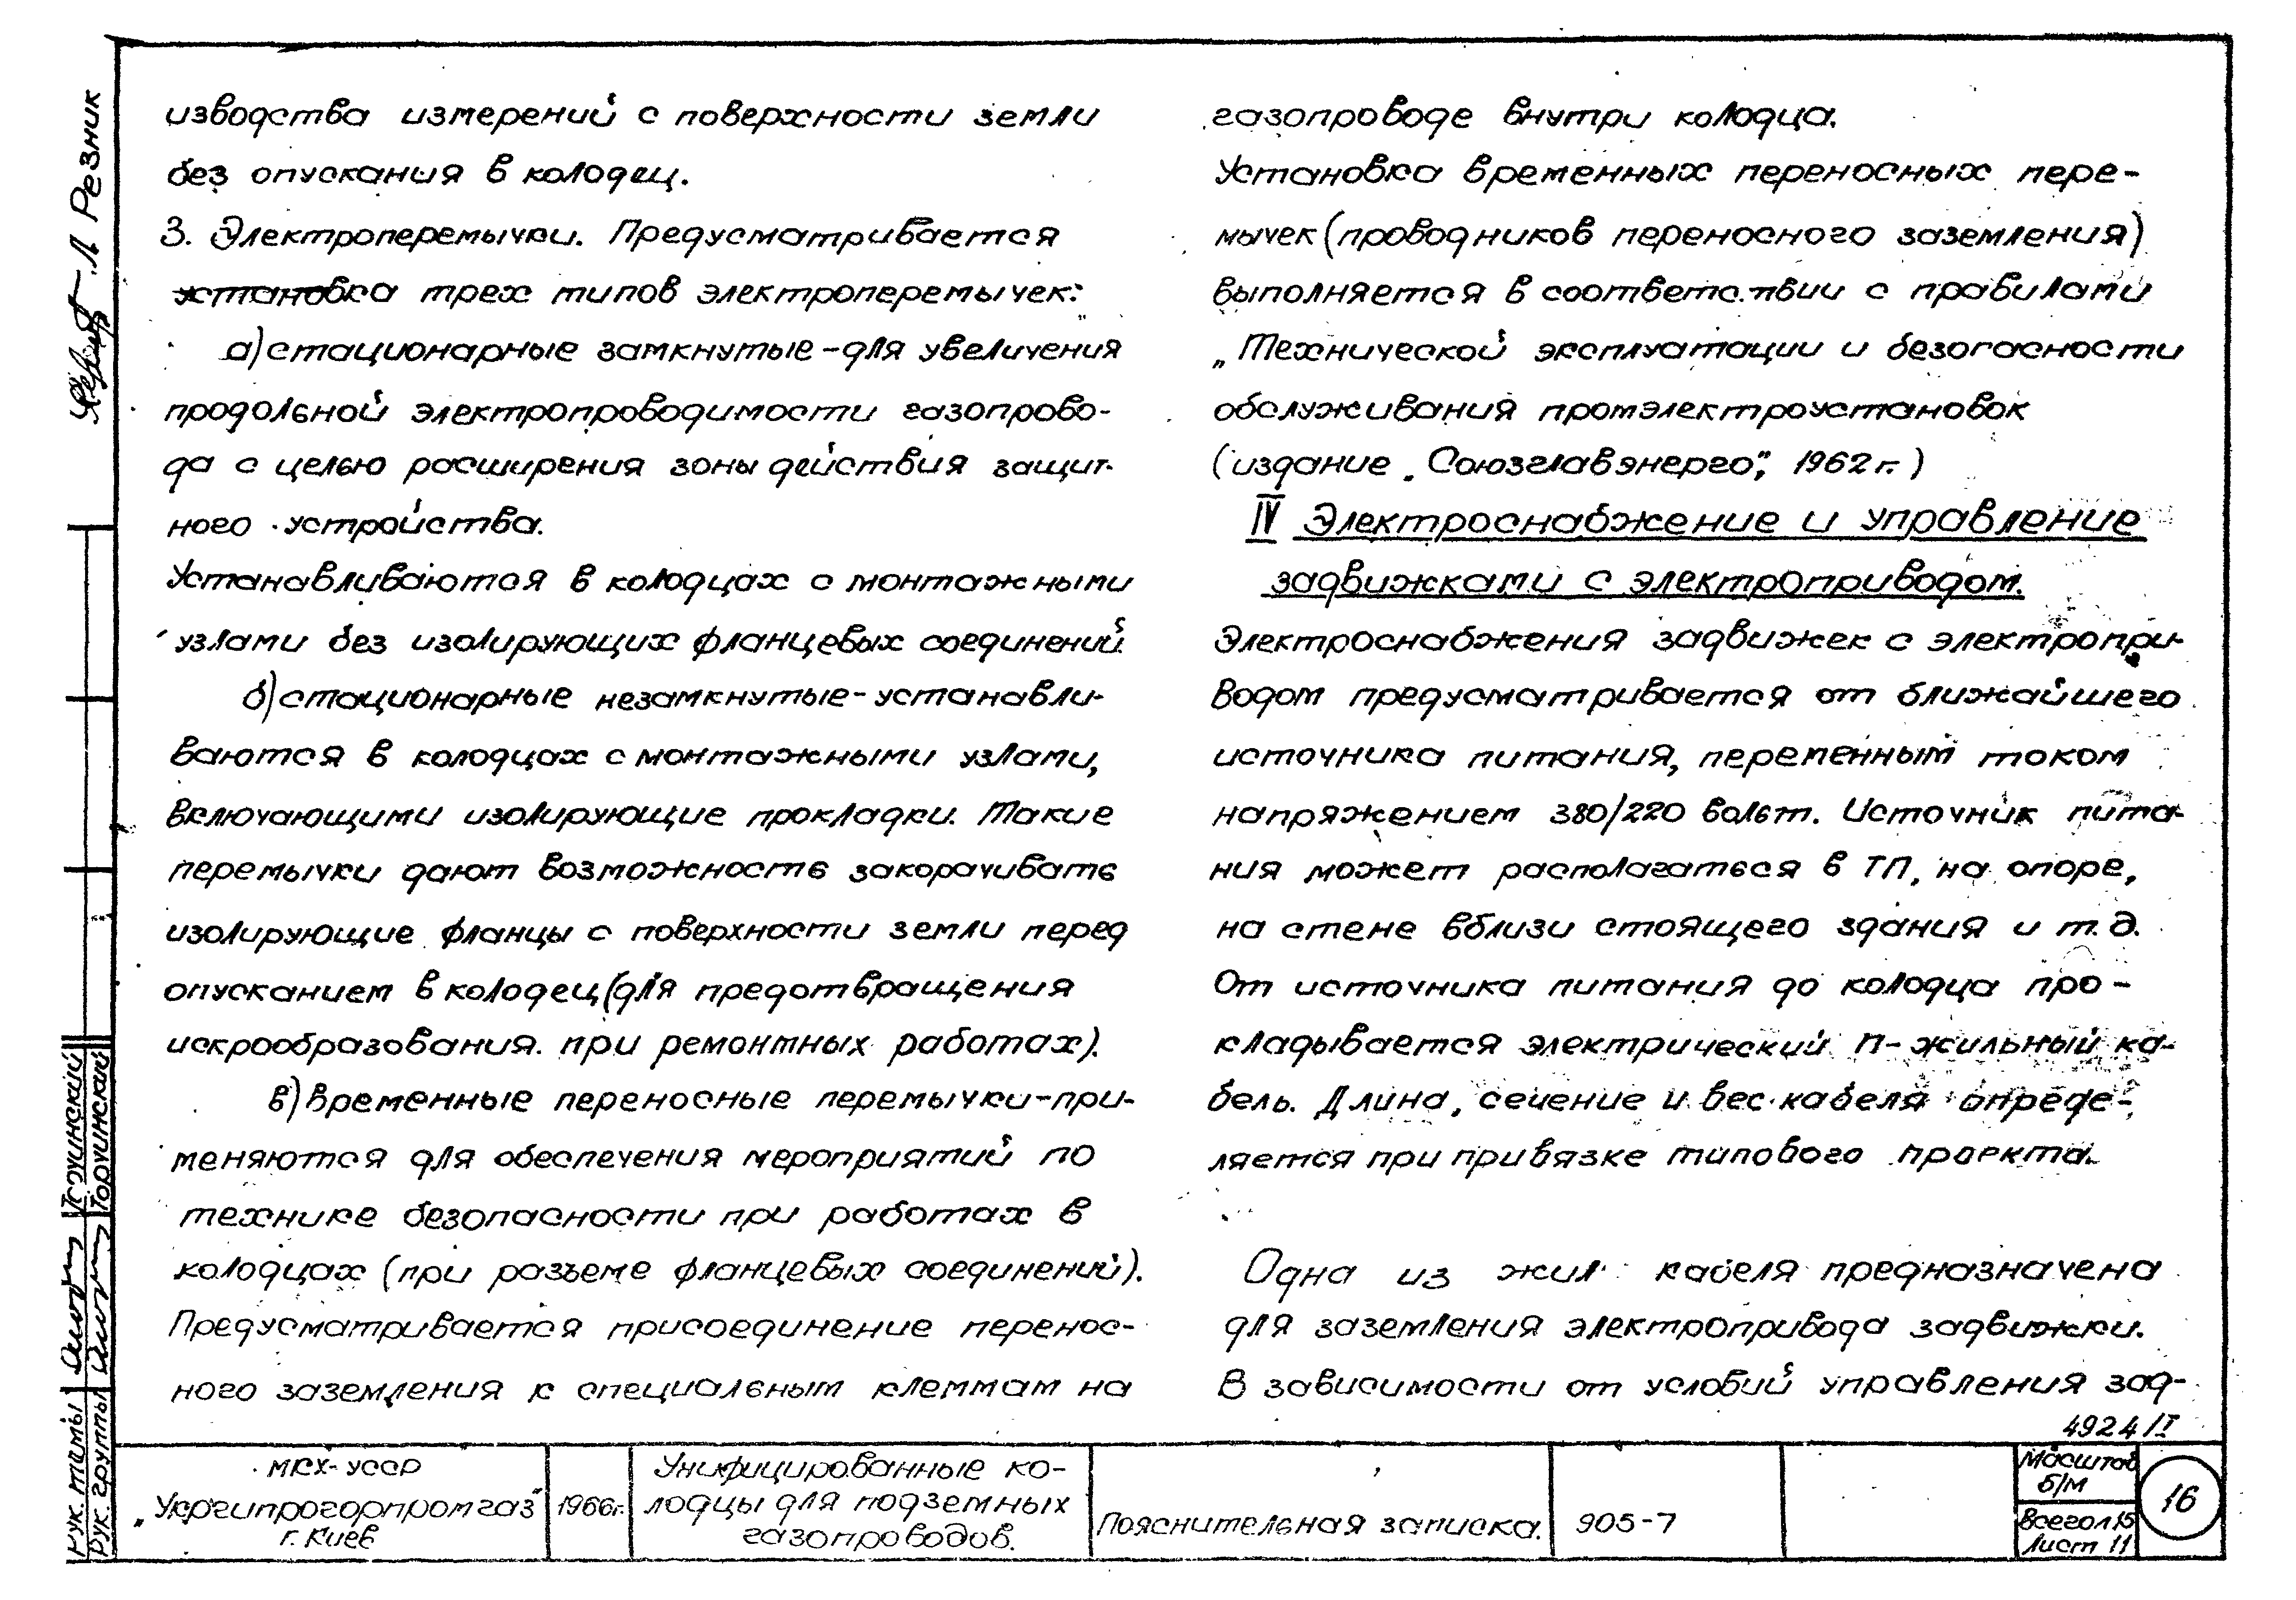 изводства измерений с поверхности земли
без опускания в колодец.
3. Электроперемычки. Предусматривается
установка трех типов электроперемычек:
а) стационарные замкнутые - для увеличения
продольной электропроводимости газопрово-
да с целью расширения зоны действия защит-
ного устройства.
Устанавливаются в колодцах с монтажными
узлами без изолирующих фланцевых соединений.
б) стационарные незамкнутые - устанавли-
ваются в колодцах с монтажными узлами,
включающими изолирующие прокладки. Такие
перемычки дают возможность закорачивать
изолирующие фланцы с поверхности земли перед
опусканием в колодец (для предотвращения
искрообразования при ремонтных работах).
в) временные переносные перемычки - при-
меняются для обеспечения мероприятий по
технике безопасности при работах в
колодцах (при разъеме фланцевых соединений).
Предусматривается присоединение перенос-
ного заземления к специальным клеммам на
газопроводе внутри колодца.
Установка временных переносных пере-
мычек (проводников переносного заземления)
выполняется в соответствии с правилами
„Технической эксплуатации и безопасности
обслуживания промэлектроустановок
(издание „Союзглавэнерго", 1962 г.)
IV Электроснабжение и управление
задвижками с электроприводом.
Электроснабжения задвижек с электропри-
водом предусматривается от ближайшего
источника питания, переменным током
напряжением 380/220 вольт. Источник пита-
ния может располагаться в ТП, на опоре,
на стене вблизи стоящего здания и т.д.
От источника питания до колодца про-
кладывается электрический п-жильный ка-
бель. Длина, сечение и вес кабеля опреде-
ляется при привязке типового проекта.
Одна из жил кабеля предназначена
для заземления электропривода задвижки.
В зависимости от условий управления зад-
4924/I
МКХ-УССР
„Укргипрогорпромгаз"
г. Киев
1966г.
Унифицированные ко-
лодцы для подземных
газопроводов.
Пояснительная записка.
905-7
Масштаб
б/м
Всего л 15
Лист 11
16
Л Резник
Рук. темы
Рук. группы
Торчинский
Торчинский